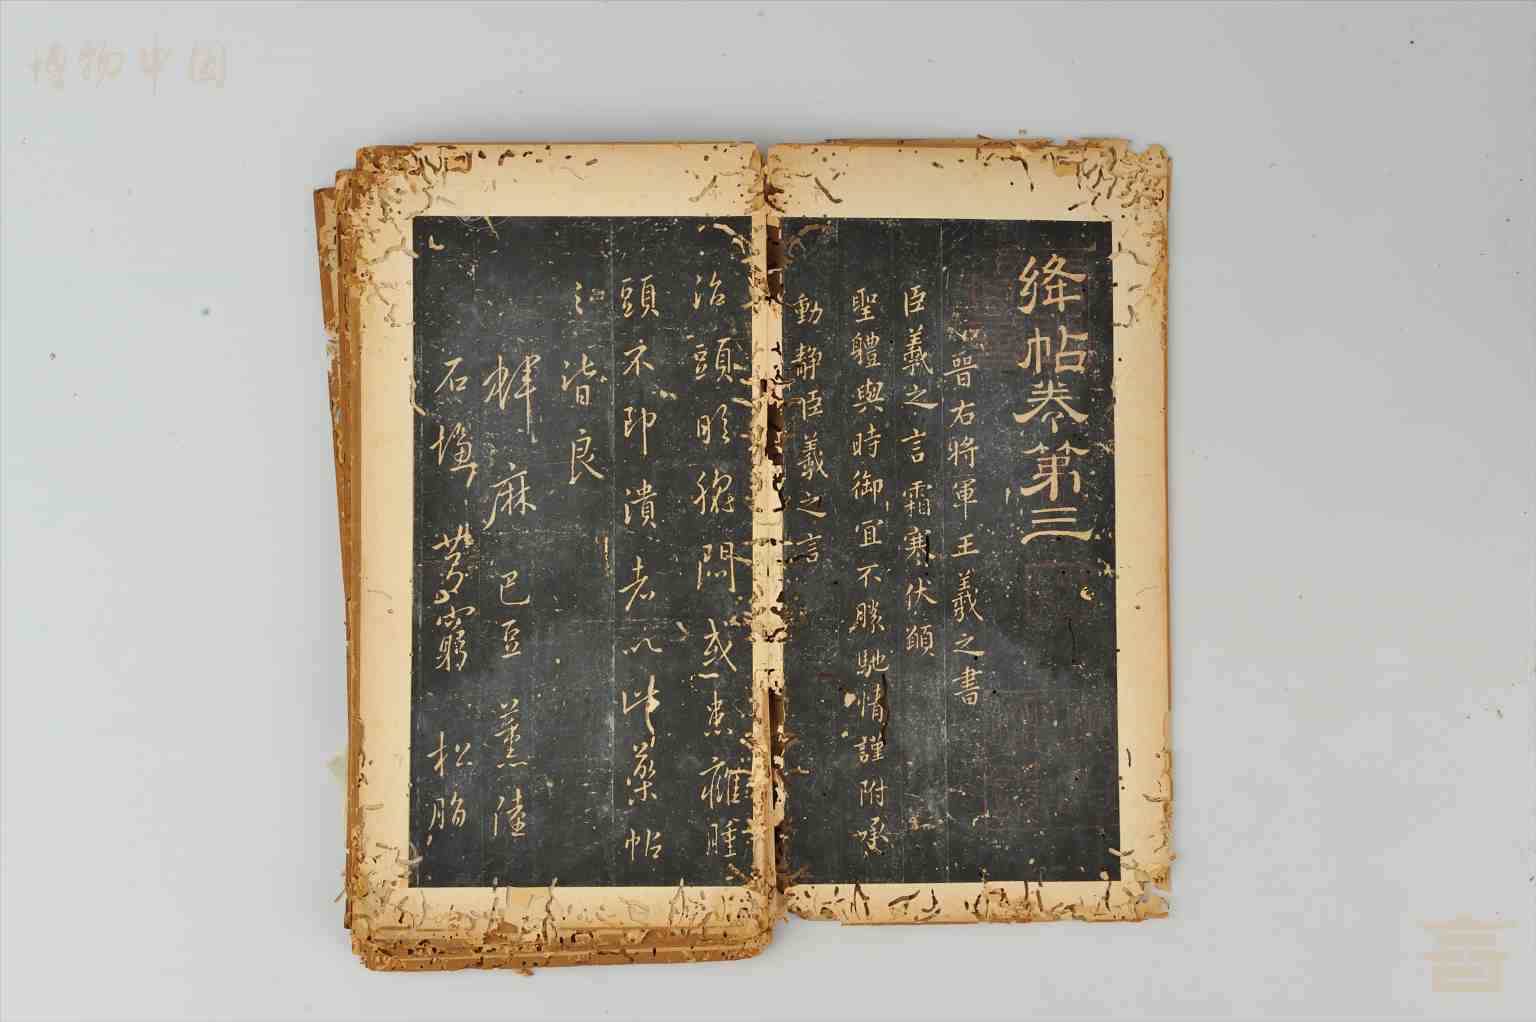 博物中国
绛帖卷第三
晉右將軍王羲之書
臣羲之言霜寒伏願
聖體與時御宜不勝馳情謹附承
動靜臣羲之言
治頭眩腦悶或患癰腫
頭不即潰者以此藥帖
之皆良
麻巴豆薰陸
石鹽芎窮松脂